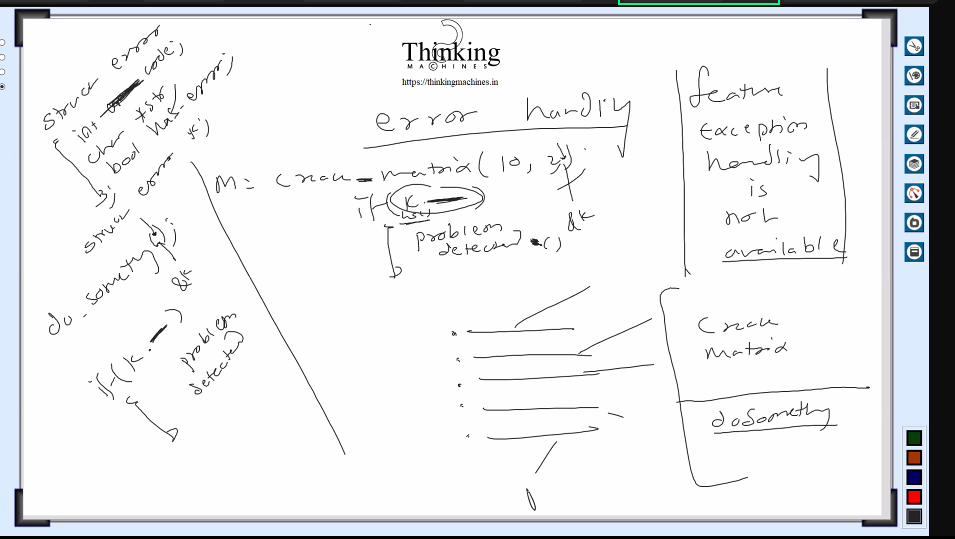 Thinking
MACHINES
https://thinkingmachines.in
struct error
{
int code;
char *str;
bool has-error;
};
struct error k;
do-something( );
&k
if(k.
{
problem
detected
}
error handling
M = create-matrix( 10, 3, );
&k
if(k.
has()
{
problem
detected ( )
}
feature
exception
handling
is
not
available
create
matrix
doSomethg